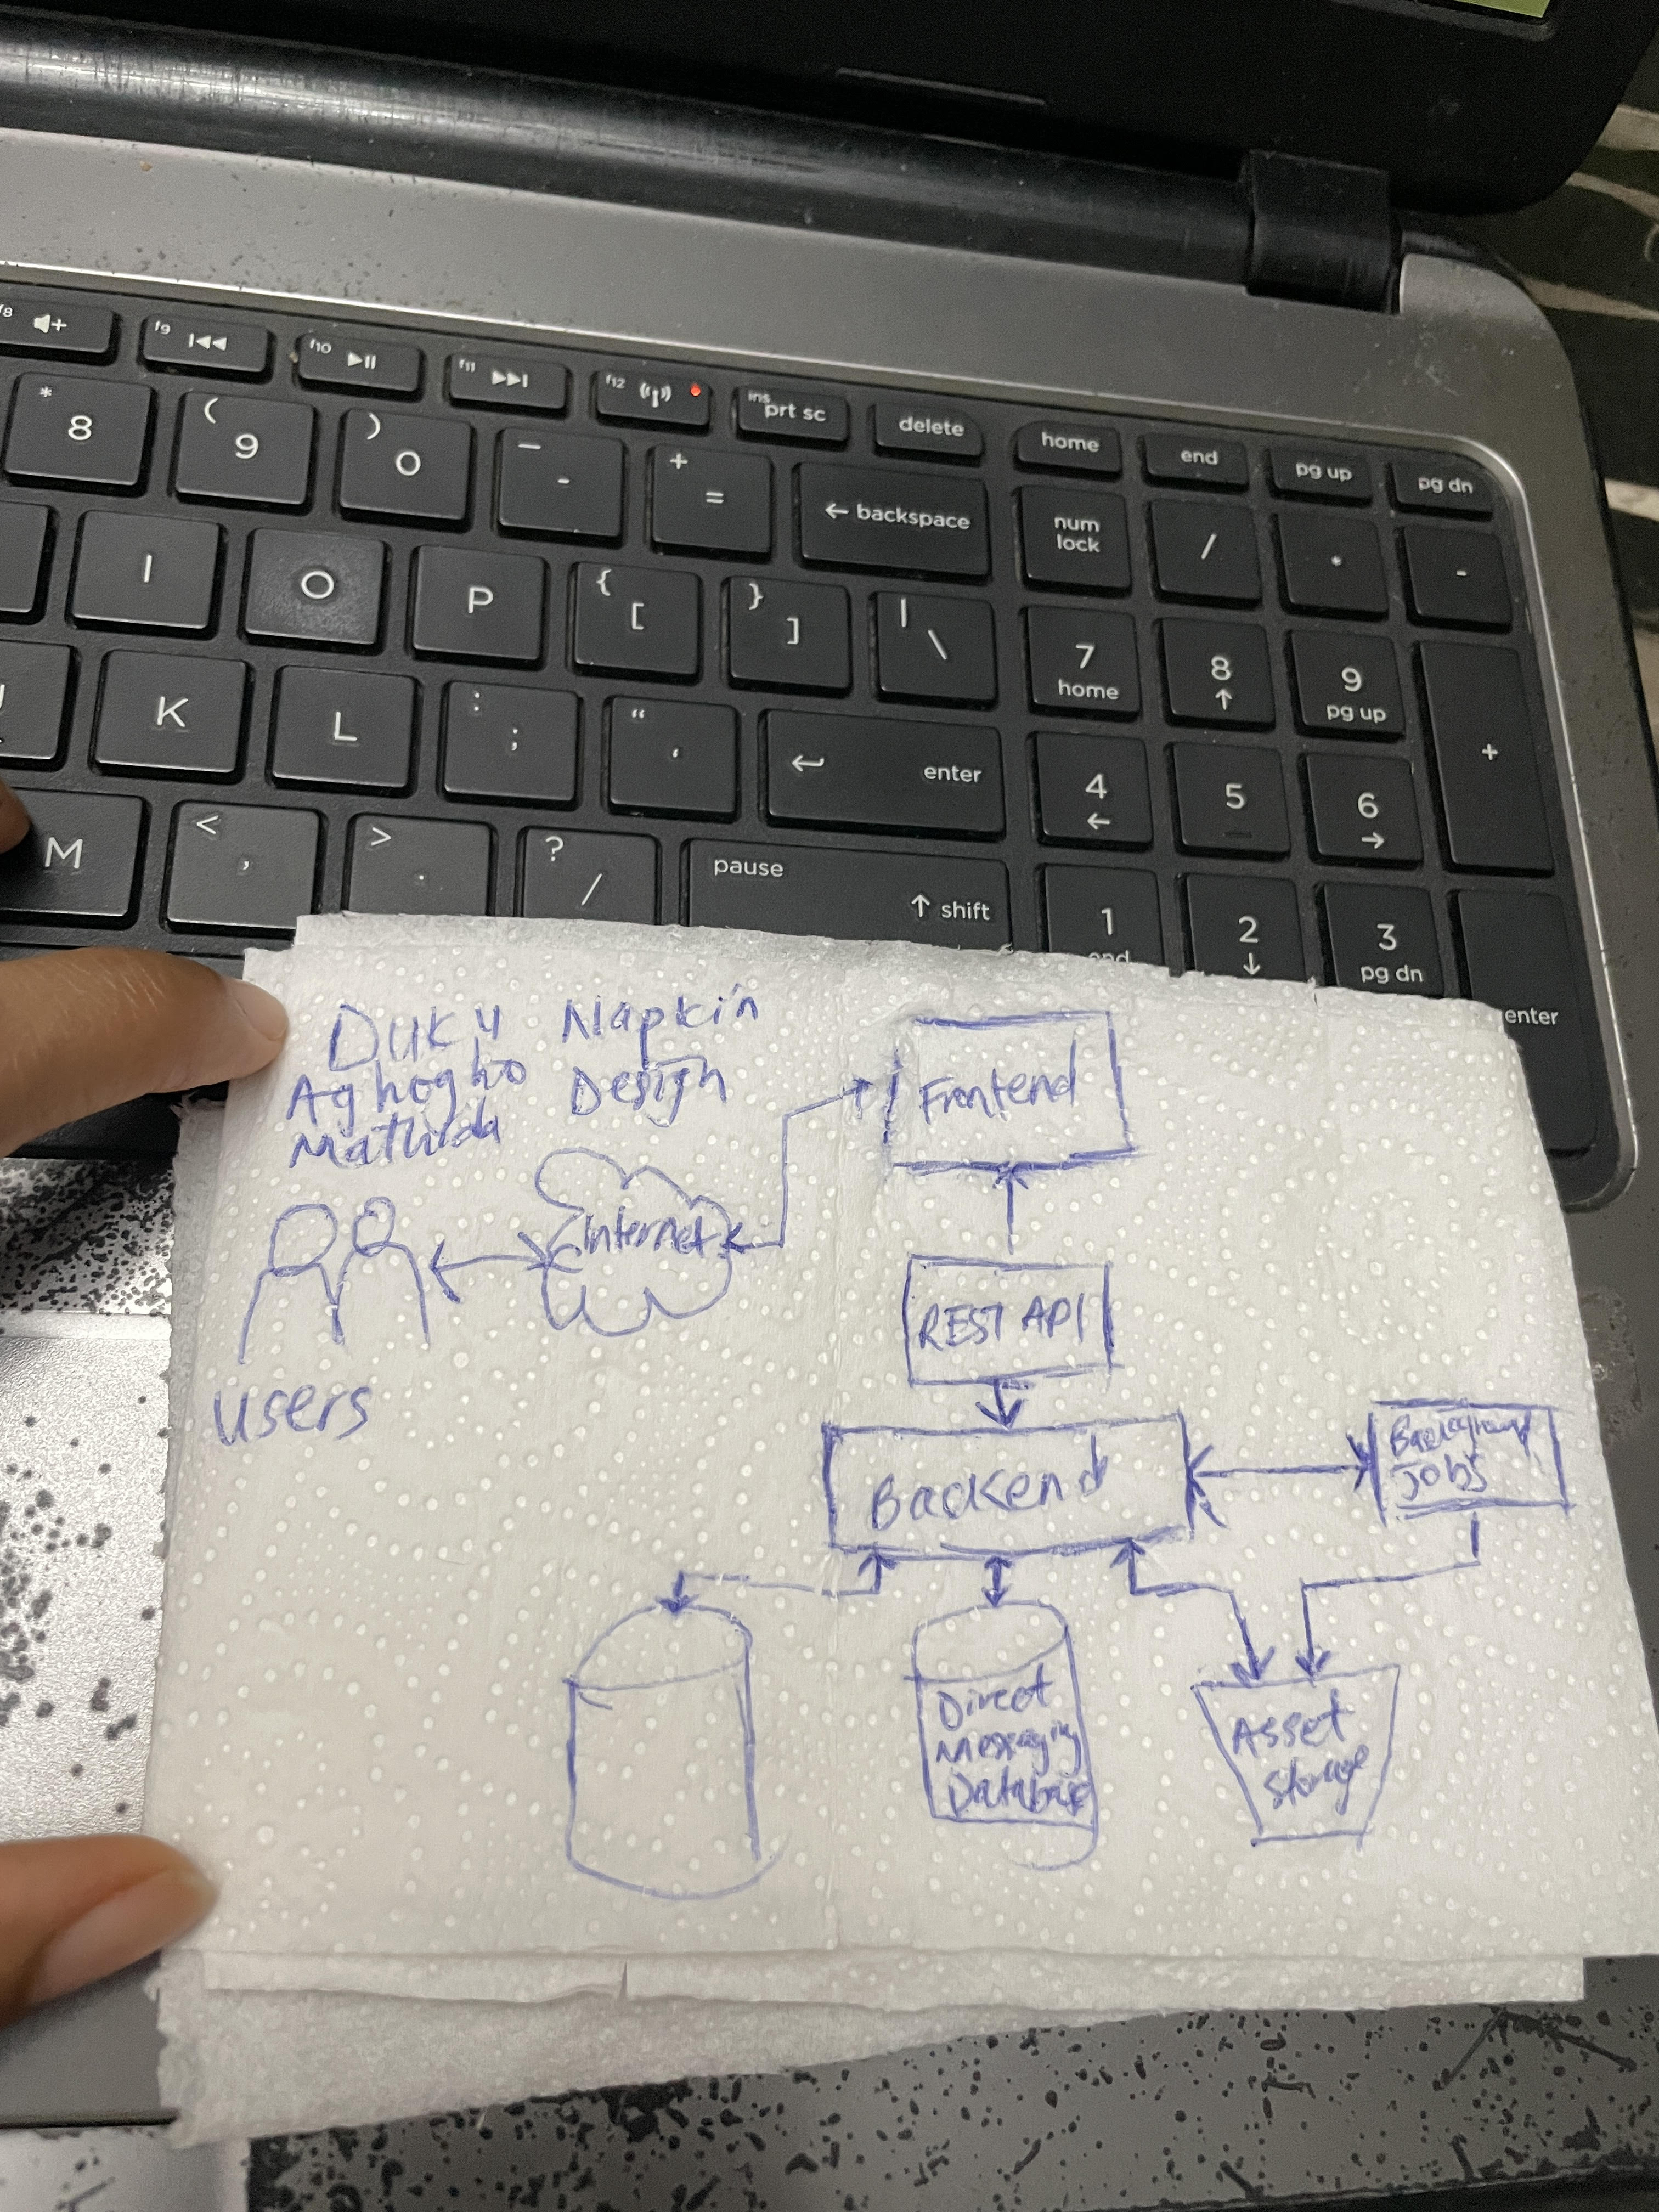 f8
f9
f10
f11
f12
ins
prt sc
delete
home
end
pg up
pg dn
* 8
( 9
) 0
_ -
+ =
← backspace
num lock
/
*
-
I
O
P
{ [
} ]
| \
7 home
8 ↑
9 pg up
+
K
L
: ;
" '
↵ enter
4 ←
5
6 →
M
< ,
> .
? /
pause
↑ shift
1 end
2 ↓
3 pg dn
enter
Napkin
Aghogho Design
Frontend
Internet
REST API
users
Background
Jobs
Backend
Direct
Messaging
Database
Asset
Storage